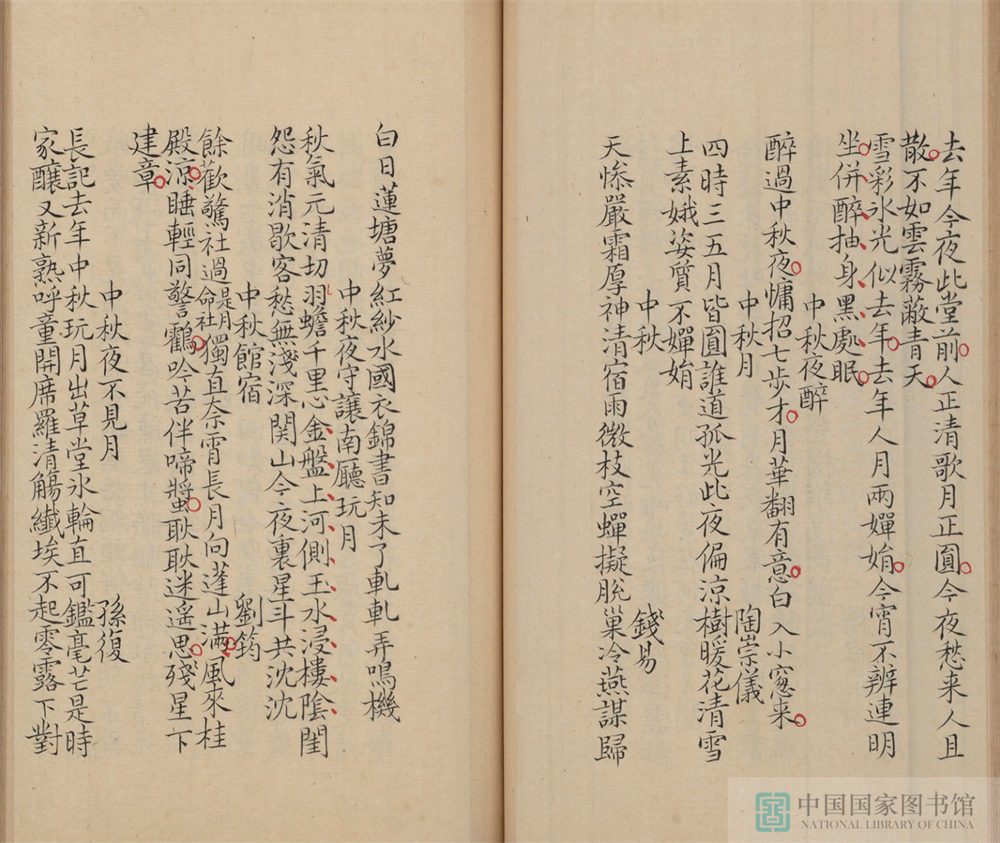 去年今夜此堂前人正清歌月正圓今夜愁来人且
散不如雲霧蔽青天
雪彩冰光似去年去年人月兩嬋娟今宵不辨連明
坐併醉抽身黑處眠
中秋夜醉
醉過中秋夜慵招七步才月華翻有意白入小窓来
中秋月 陶崇儀
四時三五月皆圓誰道孤光此夜偏涼樹暖花清雪
上素娥姿質不嬋娟
中秋 錢易
天慘嚴霜厚神清宿雨微枝空蟬擬脫巢冷燕謀歸
白日蓮塘夢紅紗水國衣錦書知未了軋軋弄鳴機
中秋夜守讓南廳玩月
秋氣元清切羽蟾千里心金盤上河側玉水浸樓陰閨
怨有消歇客愁無淺深関山今夜裏星斗共沈沈
中秋館宿 劉筠
餘歡驚社過是月命社獨直奈霄長月向蓬山滿風來桂
殿涼睡輕同警鸖吟苦伴啼螿耿耿迷遥思殘星下
建章
中秋夜不見月 孫復
長記去年中秋玩月出草堂氷輪直可鑑毫芒是時
家釀又新熟呼童開席羅清觴纖埃不起零露下對
中国国家图书馆
NATIONAL LIBRARY OF CHINA